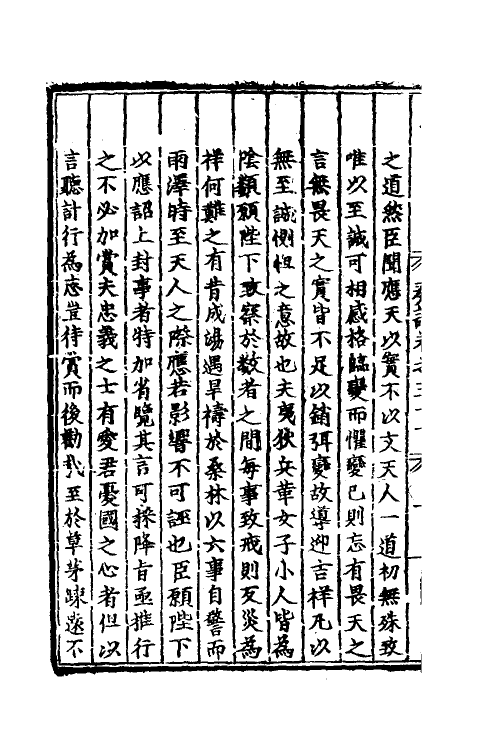 之道然臣聞應天以實不以文天人一道初無殊致
唯以至誠可相感格臨變而懼變已則忘有畏天之
言無畏天之實皆不足以銷弭變故導迎吉祥凡以
無至誠惻怛之意故也夫夷狄兵革女子小人皆為
陰類願陛下致察於數者之間每事致戒則反災為
祥何難之有昔成湯遇旱禱於桑林以六事自警而
雨澤時至天人之際應若影響不可誣也臣願陛下
以應詔上封事者特加省覽其言可採降旨亟推行
之不必加賞夫忠義之士有愛君憂國之心者但以
言聽計行為志豈待賞而後勸哉至於草茅踈遠不